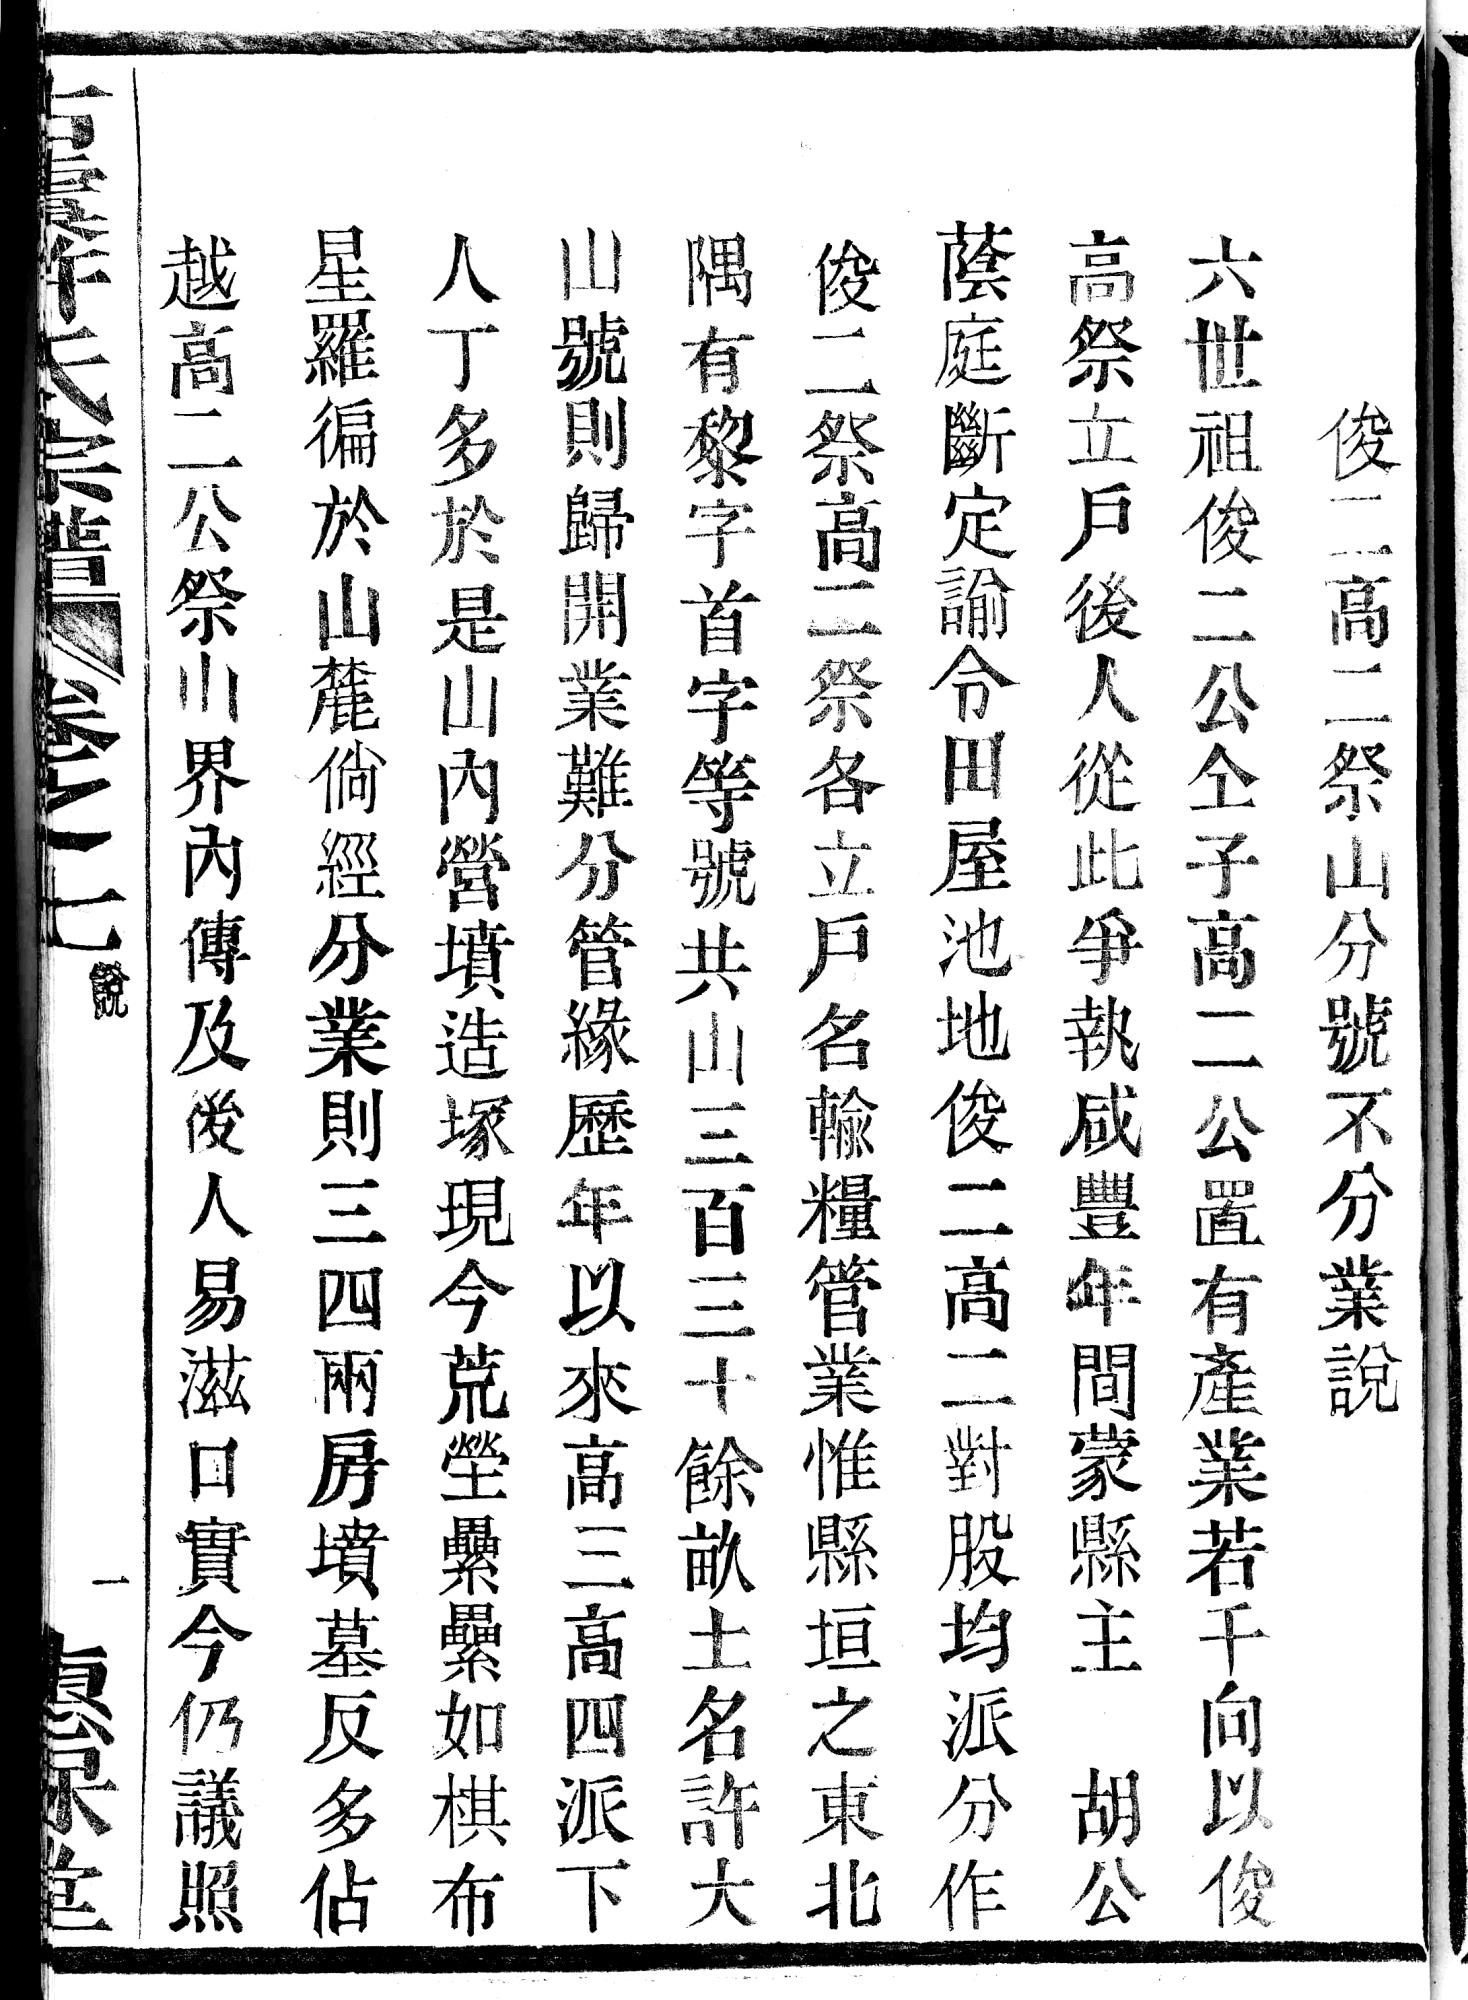 俊二高二祭山分號不分業說
六世祖俊二公仝子高二公置有產業若千向以俊
高祭立戶後人從此爭執咸豐年間蒙縣主　胡公
蔭庭斷定諭令田屋池地俊二高二對股均派分作
俊二祭高二祭各立戶名輸糧管業惟縣垣之東北
隅有黎字首字等號共山三百三十餘畝土名許大
山號則歸開業難分管緣歷年以來高三高四派下
人丁多於是山內營墳造塚現今荒塋纍纍如棋布
星羅徧於山麓倘經分業則三四兩房墳墓反多佔
越高二公祭山界內傳及後人易滋口實今仍議照
許氏宗譜 卷之七 說 一 惠保堂